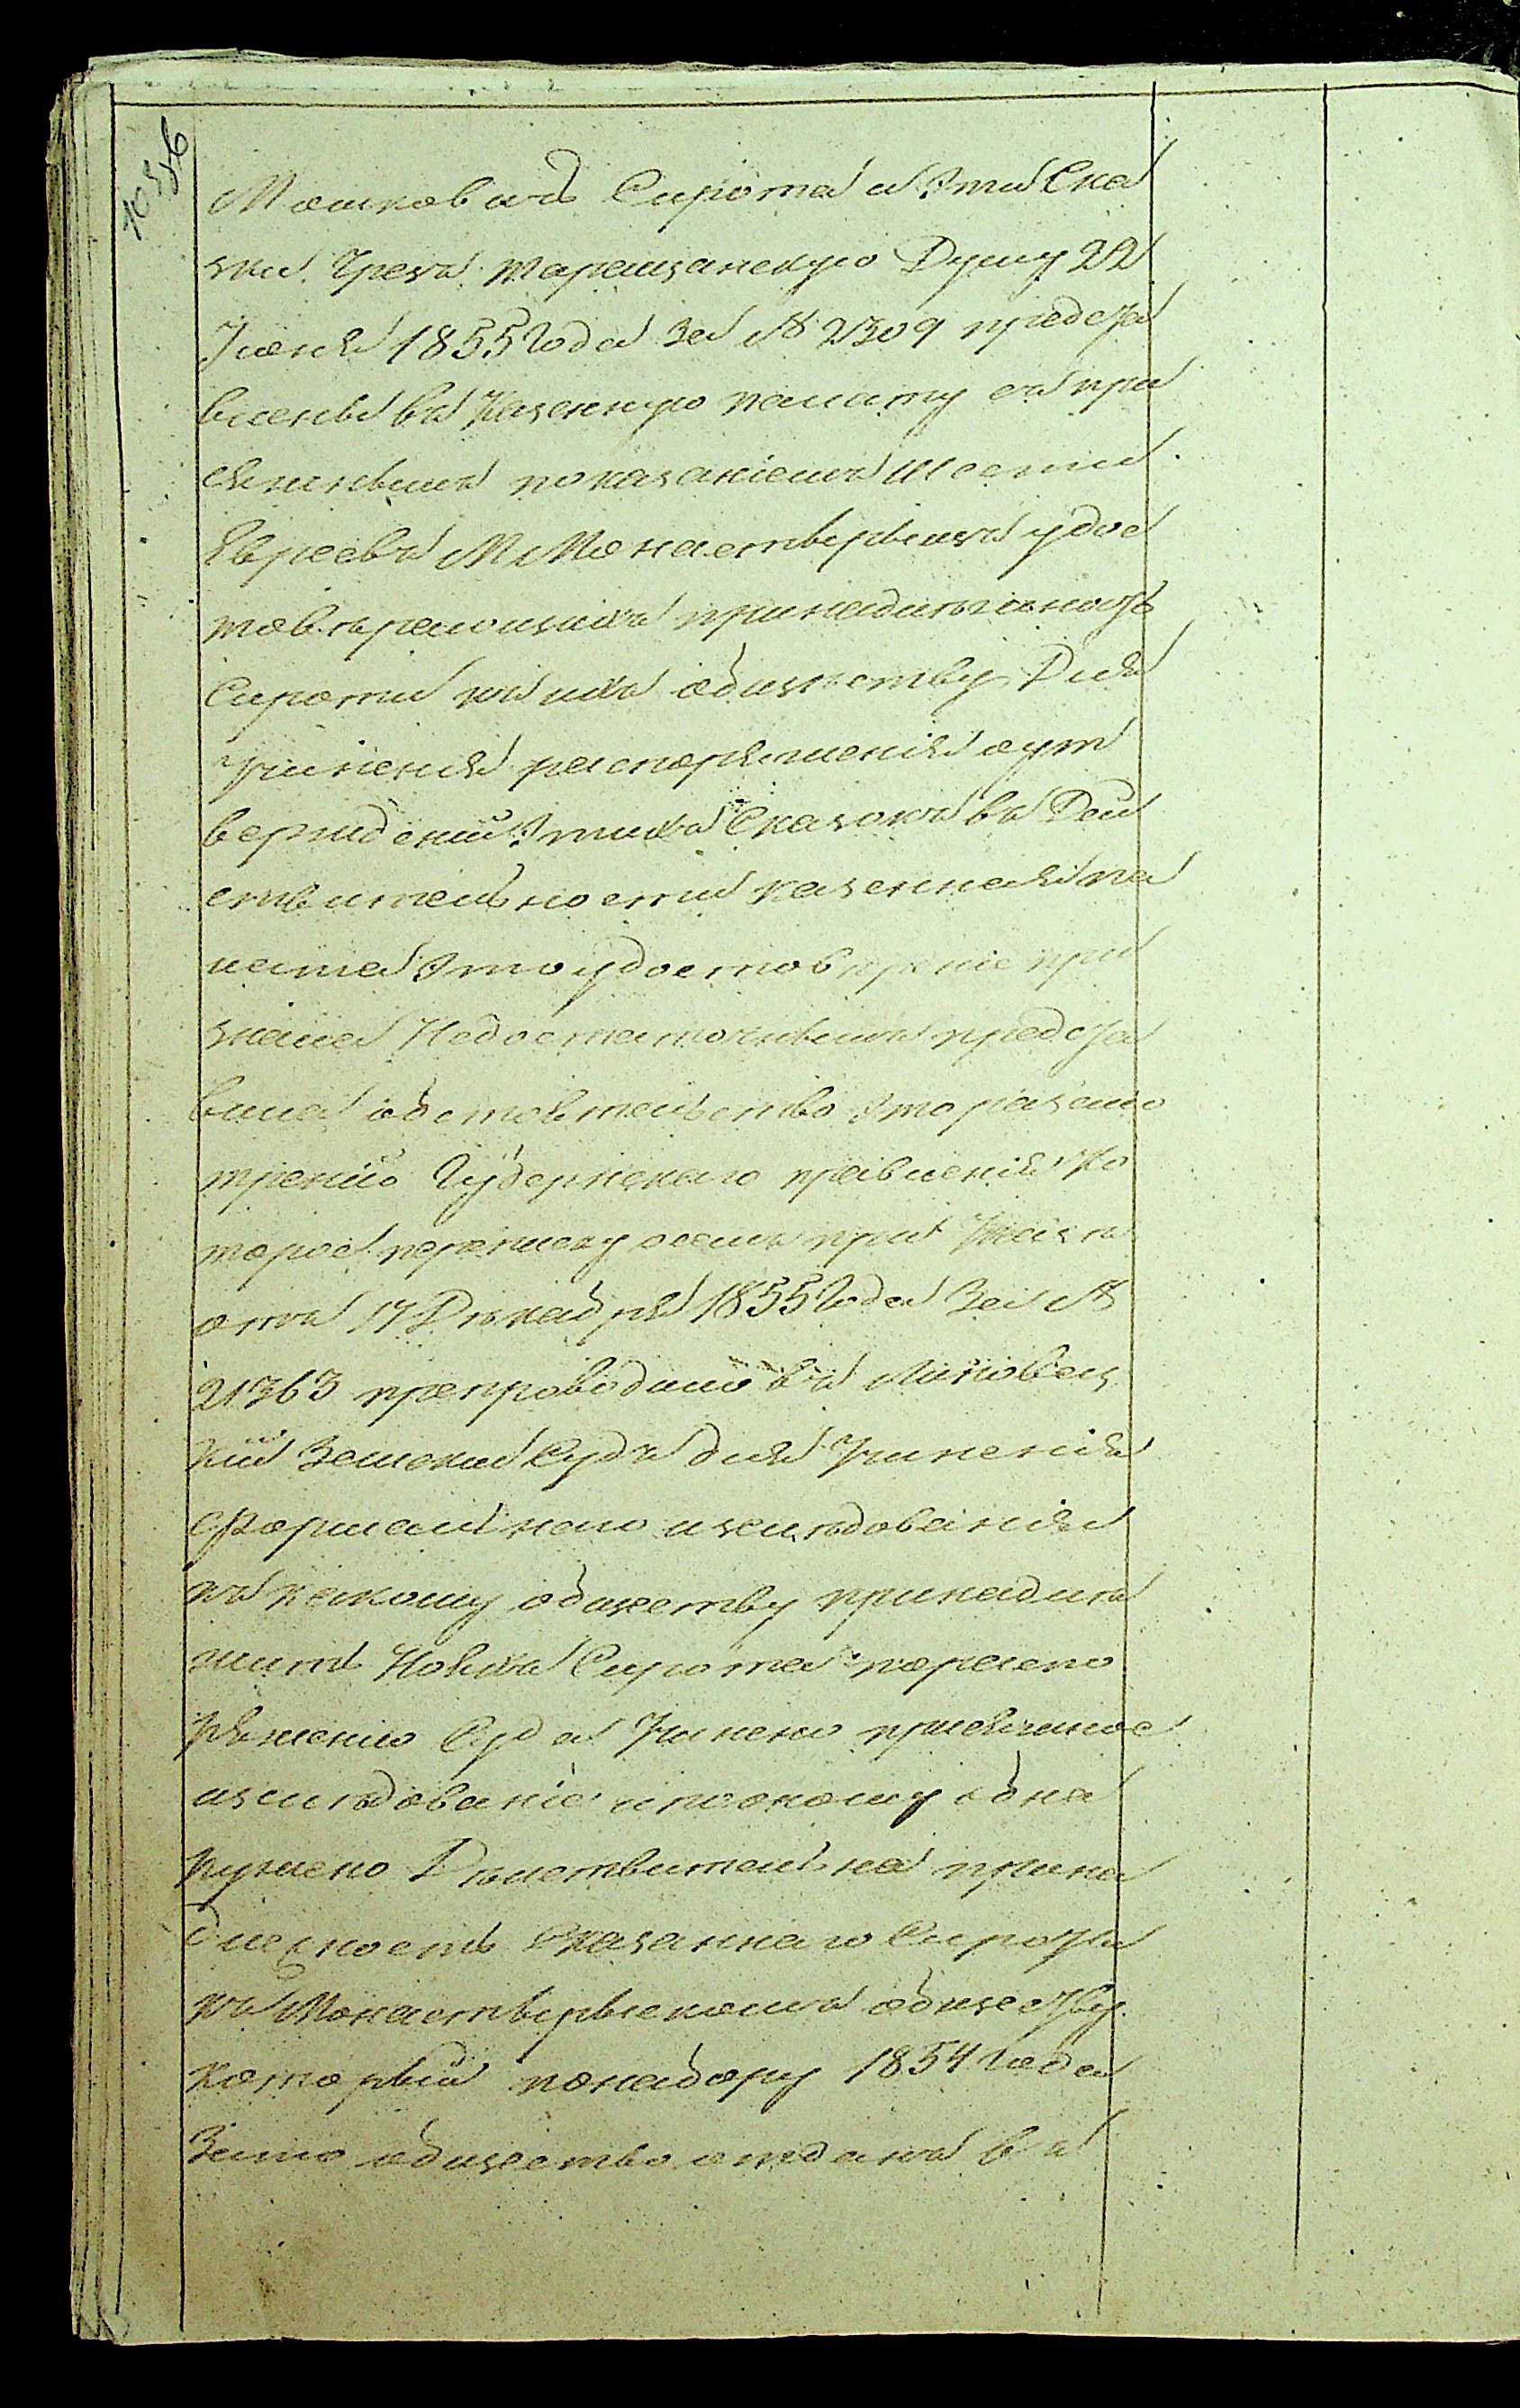 1056
Мошковичъ Сирота и эти Ска
зки чрезъ таращанскую Думу 22
Июня 1855 года За № 2309 предста
влены въ Казенную палату съ при
сяжнымъ показаніемъ шести
Евреевъ М Монастырищъ удос
товѣряющихъ принадлѣжность
Сироты къ ихъ обществу Для
учиненія распоряженія о ут
вержденіи этихъ Сказокъ въ Дей
ствительности казенная па
лата это удостовѣреніе при
знала Недостаточнымъ предста
вила обстоятельство это разсмо
трѣнію Губернскаго правленія Ко
торое переписку осемъ при Указѣ
отъ 17 Дѣкабря 1855 года За №
21363 препроводило въ Липовец
кій Земскій Судъ для Учиненія
Формальнаго изслѣдованія
къ какому обществу принадлѣ
житъ Сирота пораспо
ряженію Суда Учинено присяжное
изслѣдованіе и поокому обна
ружено Дѣйствительна прина
длежность Сказаннаго Сироты
къ Монастырыскомъ обществу
который понабору 1854 года
Зато общество отданъ въ